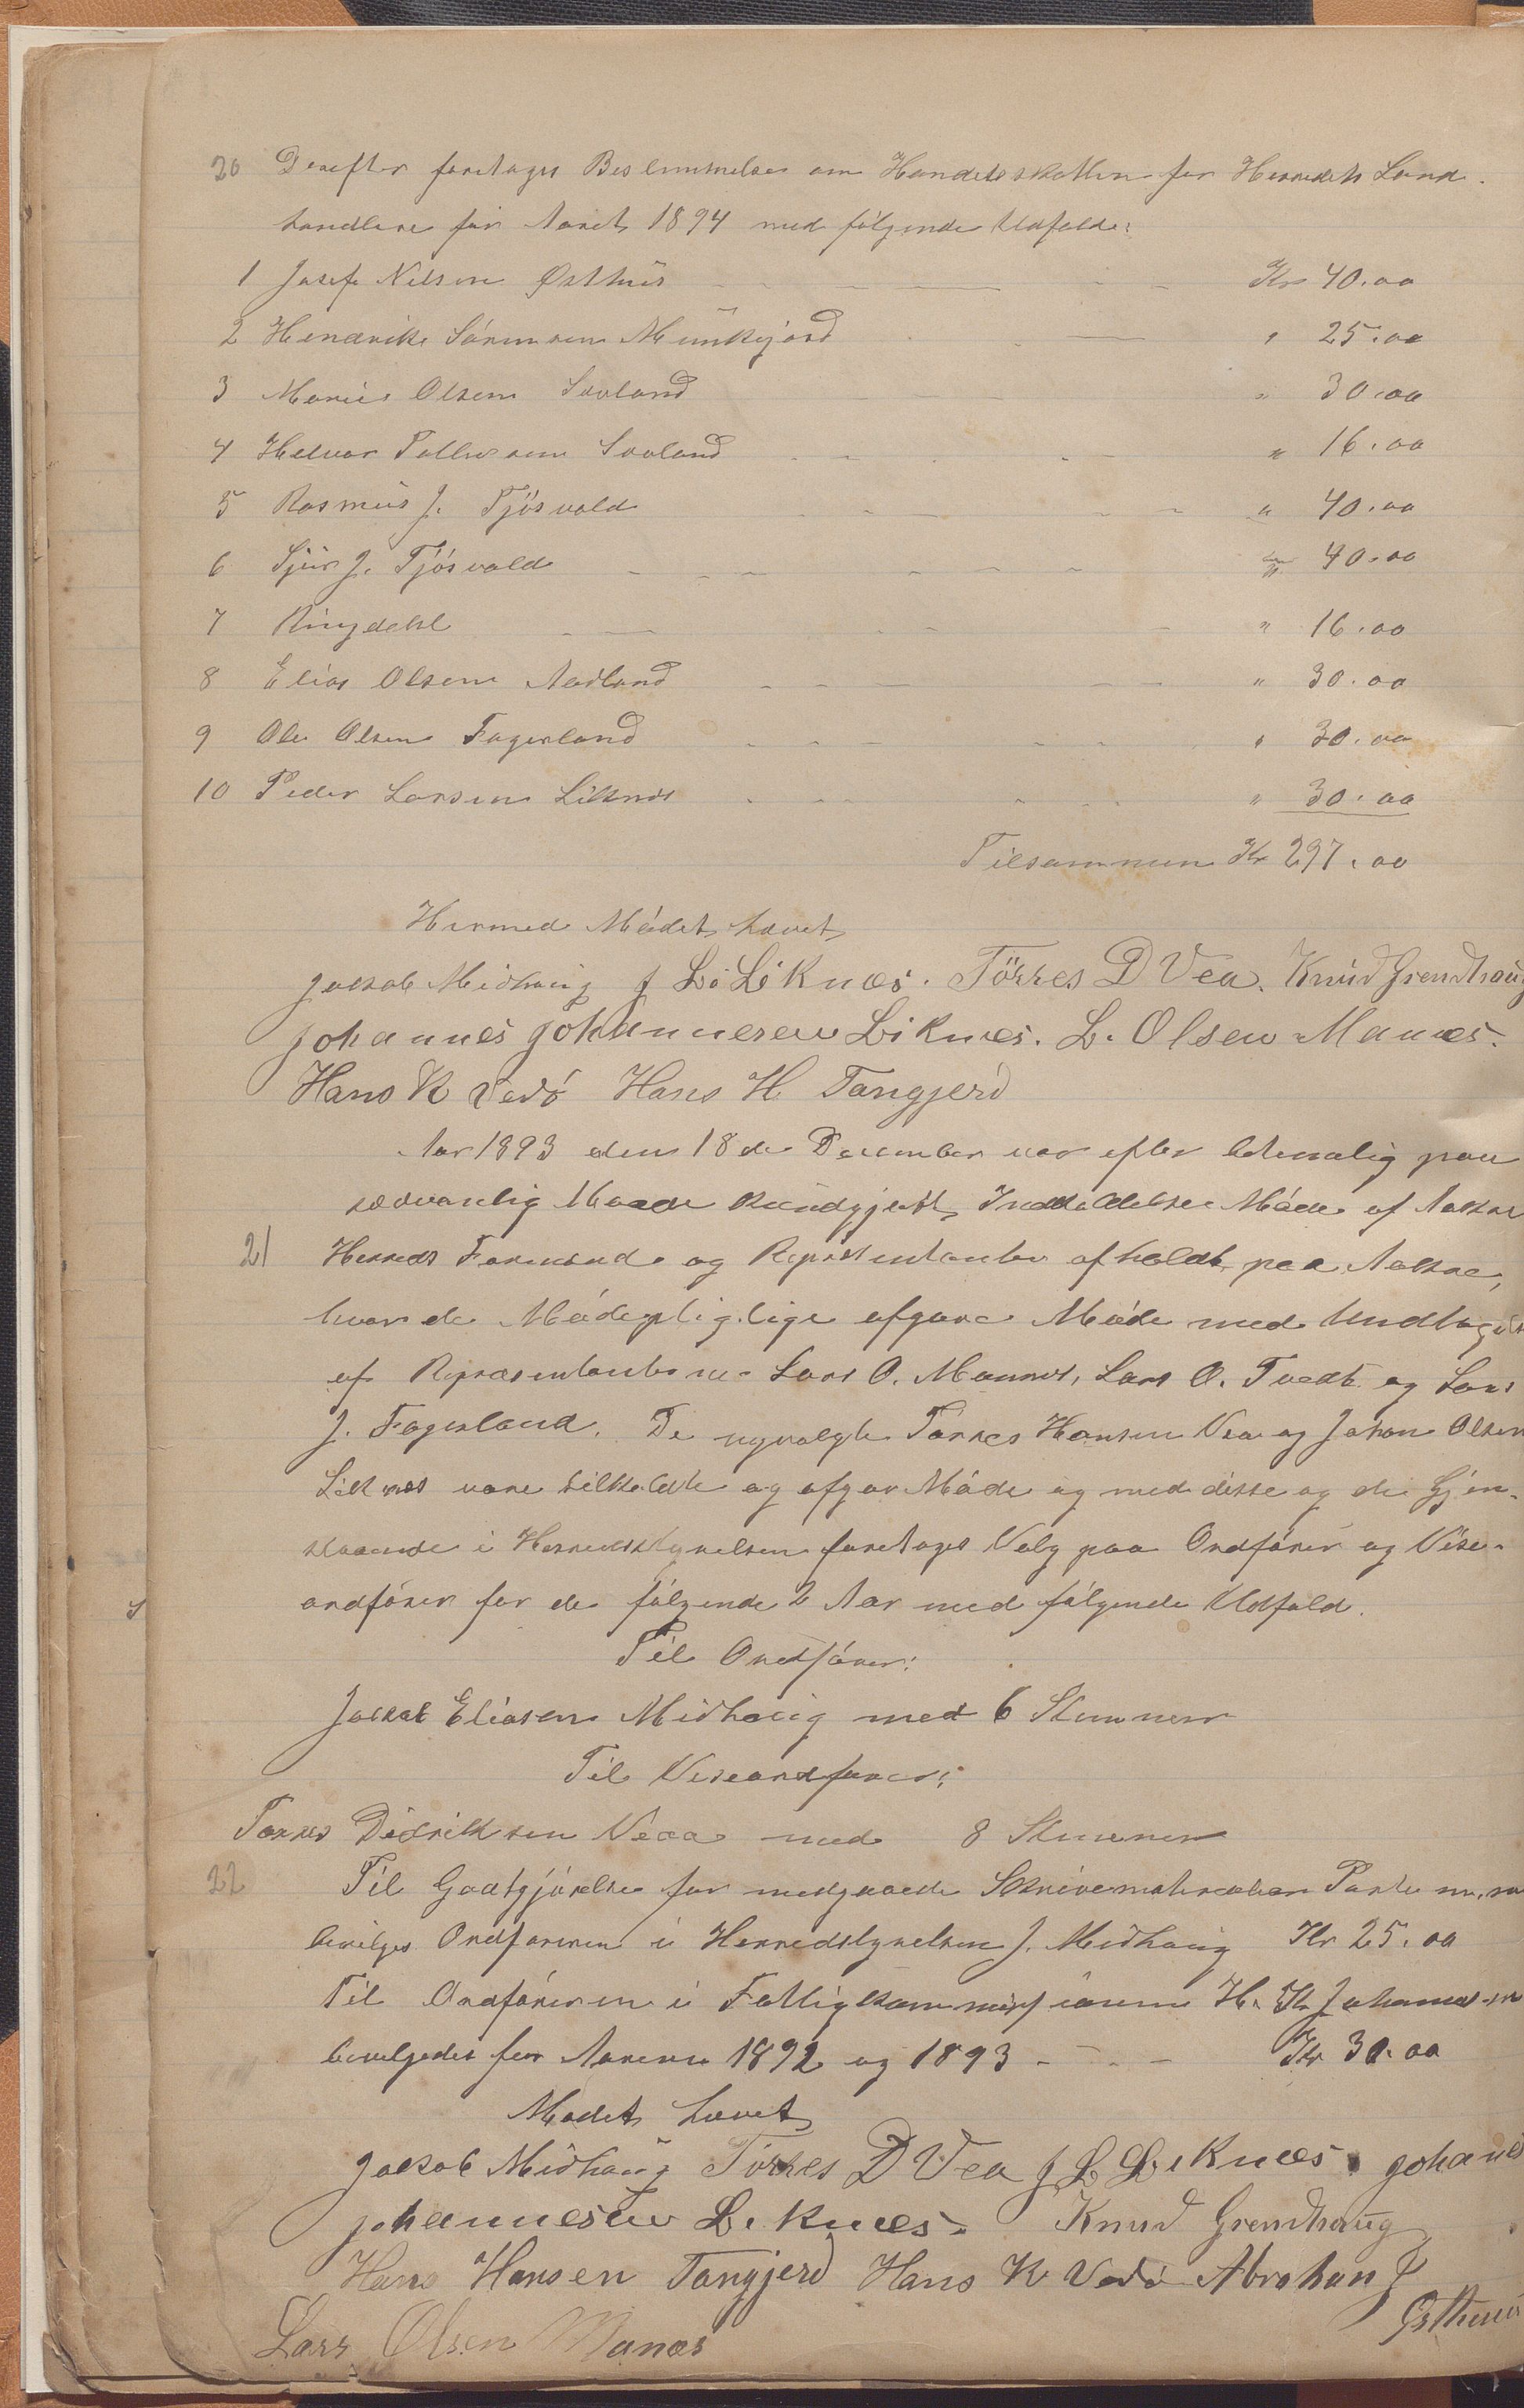 20 Derefter foretages Beslemmelse om Handelsskatten for Herredets Land-
handlere for Aaret 1894 med følgende Udfald:
1 Josef Nilsen Østhus Kr 40.00
2 Hendrik Sørensen Munkejord " 25.00
3 Marius Olsen Sævland " 30.00
4 Helvar Sævland " 16.00
5 Rasmus J. Tjøsvold " 40.00
6 Sjur J. Tjøsvold " 40.00
7 Ringdahl " 16.00
8 Elias Olsen Aadland " 30.00
9 Ole Olsen Fagerland " 30.00
10 Peder Larsen Liknes " 30.00
Tilsammen Kr 297.00
Hermed Mødet hævet
Jakob Midhaug J L. Liknæs. Törres D Vea. Knud Grendhaug
Johannes Johannesen Liknæs. L. Olsen Manæs.
Hans K Vedø Hans H Tangjerd
Aar 1893 den 18de December var efter betimelig paa
sædvanlig Maade kundgjort Indkaldelse Møde af
21 Herreds Formænd og Repræsentanter afholdt paa
hvor de Mødepligtige afgave Møde med Undtagelse
af Repræsentanterne Lars O. Mannes, Lars O. Tvedt og Lars
J. Fagerland. De nyvalgte Torres Hansen Vea og Johan Olsen
Liknes vare tilkaldte og afgav Møde og med disse og de Gjen-
staaende i Herredsstyrelsen foretages Valg paa Ordfører og Vise-
ordfører for de følgende 2 Aar med følgende Udfald.
Til Ordfører:
Jakob Eliasen Midhaug med 6 Stemmer
Til Viseordfører:
Torres Didriksen Veaa med 8 Stemmer
22 Til Godtgjørelse for medgaaede Skrivematerialier Porto m.m
bevilges Ordføreren i Herredstyrelsen J. Midhaug Kr 25.00
Til Ordføreren i Fattigkommissionen H. K Johannesen
bevilgedes for Aarene 1892 og 1893 Kr 30.00
Mødet hævet
Jakob Midhaug Törres D Vea J L Liknæs. Johanes
Johannesen Liknæs. Knud Grendhaug
Hans Hansen Tangjerd Hans K Vedø Abraham J
Østhuus
Lars Olsen Manæs